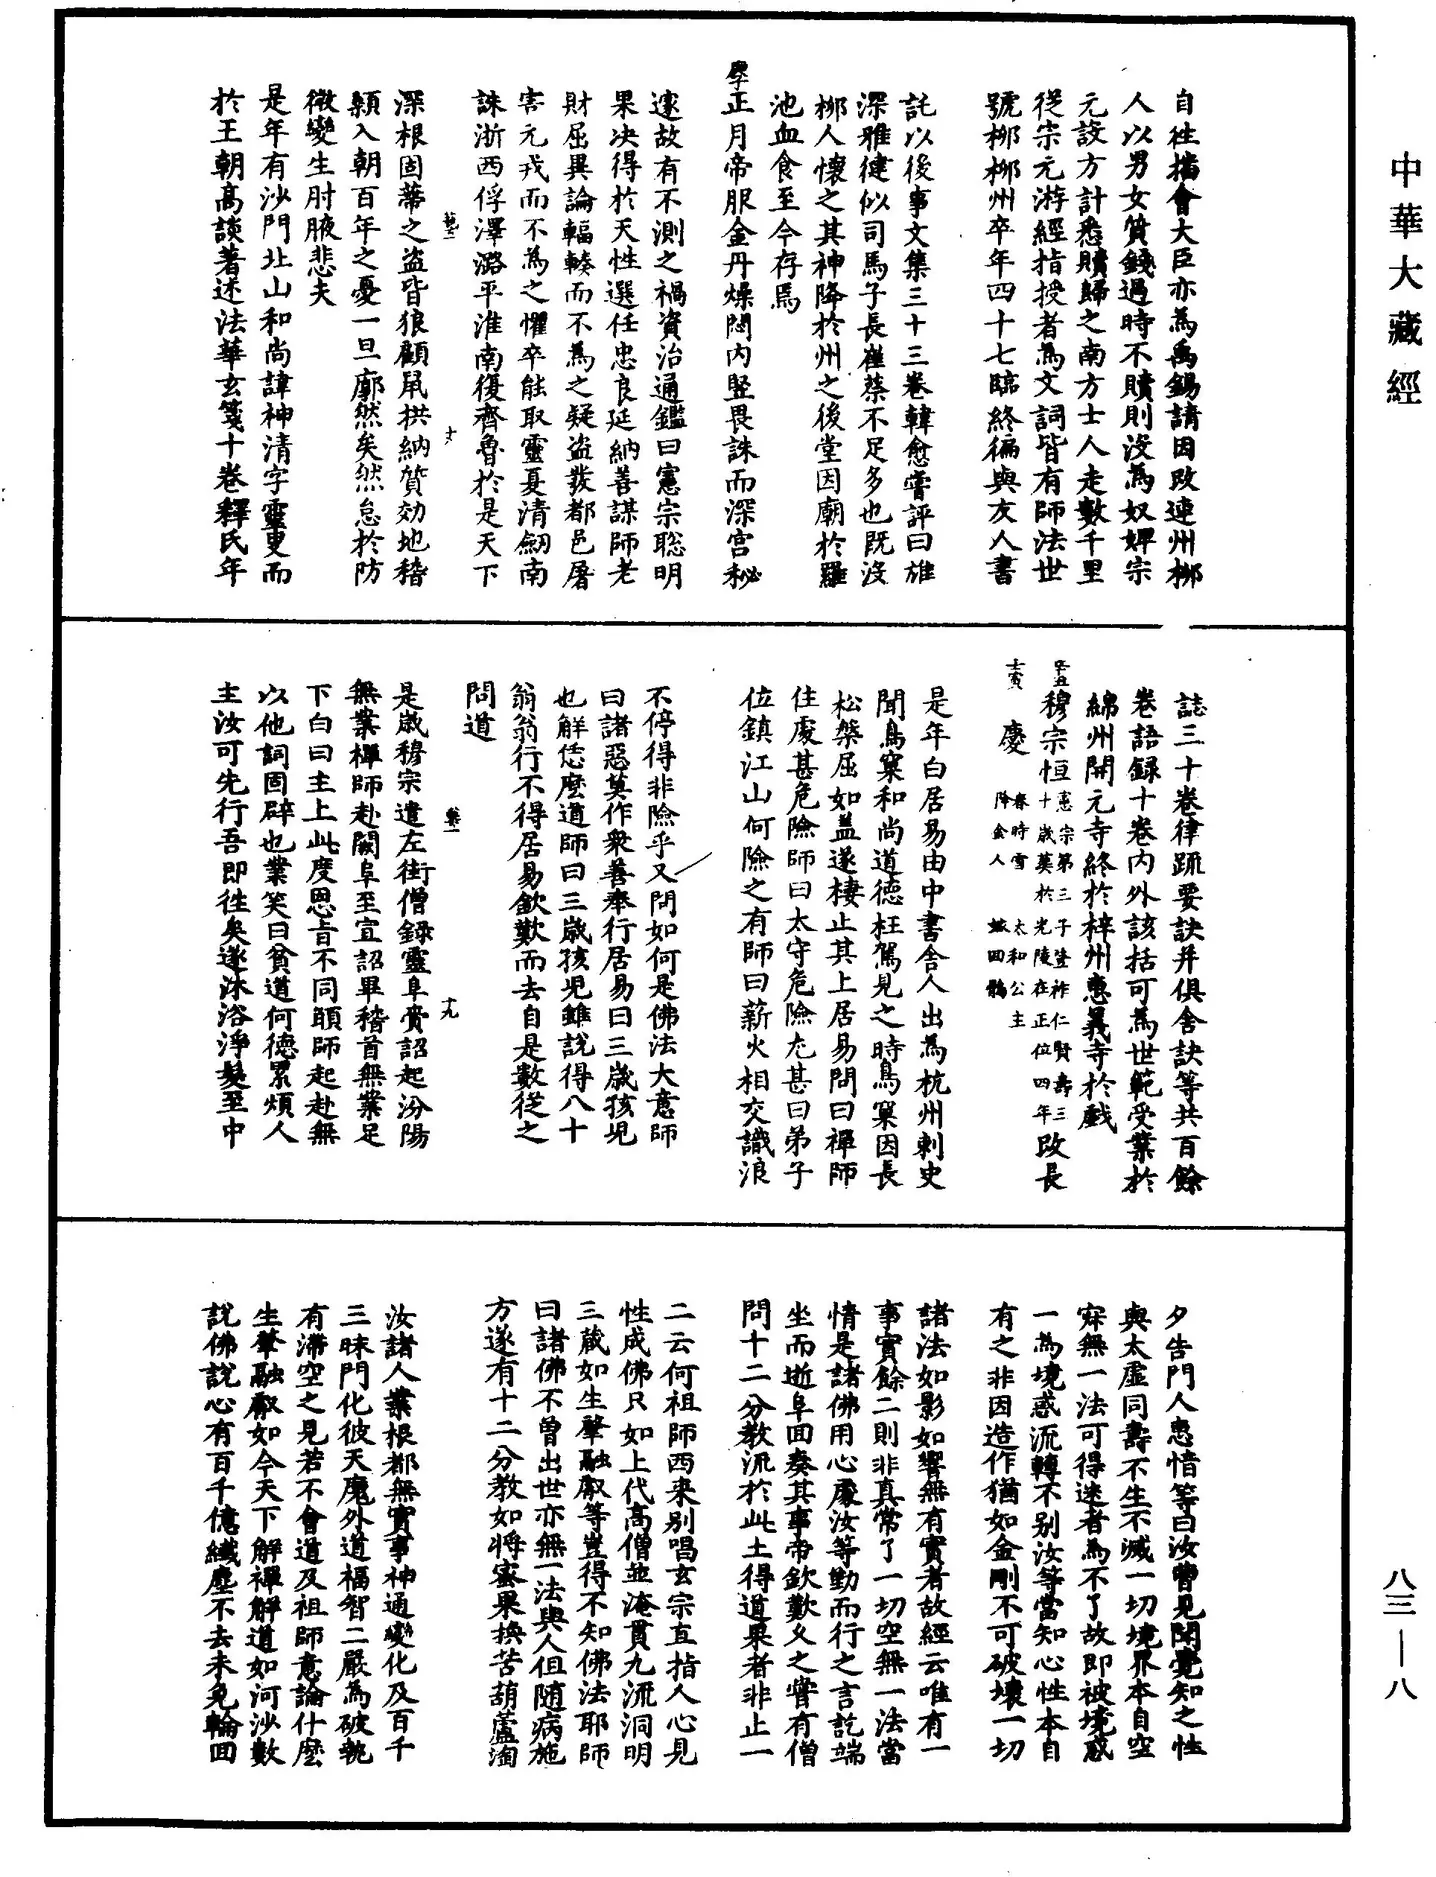 中華大藏經
自往播會大臣亦為禹錫請因改連州柳
人以男女質錢過時不贖則沒為奴婢宗
元設方計悉贖歸之南方士人走數千里
從宗元游經指授者為文詞皆有師法世
號柳柳州卒年四十七臨終徧與友人書
託以後事文集三十三卷韓愈嘗評曰雄
深雅健似司馬子長崔蔡不足多也既沒
柳人懷之其神降於州之後堂因廟於羅
池血食至今存焉
正月帝服金丹燥悶內豎畏誅而深宮秘
邃故有不測之禍資治通鑑曰憲宗聡明
果決得於天性選任忠良延納善謀師老
財屈異論輻輳而不為之疑盜發都邑屠
害元戎而不為之懼卒能取靈夏清劒南
誅浙西俘澤潞平淮南復齊魯於是天下
深根固蔕之盜皆狼顧鼠拱納質効地稽
顙入朝百年之憂一旦廓然矣然怠於防
微變生肘腋悲夫
是年有沙門北山和尚諱神清字靈叟而
於王朝高談著述法華玄箋十卷釋氏年
誌三十卷律疏要訣并俱舍訣等共百餘
卷語録十卷內外該括可為世範受業於
綿州開元寺終於梓州惠義寺於戲
辛丑
穆宗恒
憲宗第三子登祚仁賢壽三
十歲葬於光陵在正位四年
改長
壬寅
慶
春時雪 太和公主
降金人 嫁回鶻
是年白居易由中書舍人出為杭州刺史
聞鳥窠和尚道德枉駕見之時鳥窠因長
松槃屈如盖遂棲止其上居易問曰禪師
住處甚危險師曰太守危險尤甚曰弟子
位鎮江山何險之有師曰薪火相交識浪
不停得非險乎又問如何是佛法大意師
曰諸惡莫作衆善奉行居易曰三歲孩児
也解恁麽道師曰三歲孩児雖說得八十
翁翁行不得居易欽歎而去自是數從之
問道
是歲穆宗遣左街僧録靈阜賫詔起汾陽
無業禪師赴闕阜至宣詔畢稽首無業足
下白曰主上此度恩旨不同願師起赴無
以他詞固辟也業笑曰貧道何德累煩人
主汝可先行吾即往矣遂沐浴淨髮至中
夕告門人惠愔等曰汝曹見聞覺知之性
與太虛同壽不生不滅一切境界本自空
寂無一法可得迷者為不了故即被境惑
一為境惑流轉不别汝等當知心性本自
有之非因造作猶如金剛不可破壞一切
諸法如影如響無有實者故經云唯有一
事實餘二則非真常了一切空無一法當
情是諸佛用心處汝等勤而行之言訖端
坐而逝阜回奏其事帝欽歎久之嘗有僧
問十二分教流於此土得道果者非止一
二云何祖師西来别唱玄宗直指人心見
性成佛只如上代高僧並淹貫九流洞明
三藏如生肇融叡等豈得不知佛法耶師
曰諸佛不曾出世亦無一法與人但随病施
方遂有十二分教如將蜜果換苦葫蘆淘
汝諸人業根都無實事神通變化及百千
三昧門化彼天魔外道福智二嚴為破執
有滯空之見若不會道及祖師意論什麽
生肇融叡如今天下解禪解道如河沙數
說佛說心有百千億纖塵不去未免輪回
八三—八